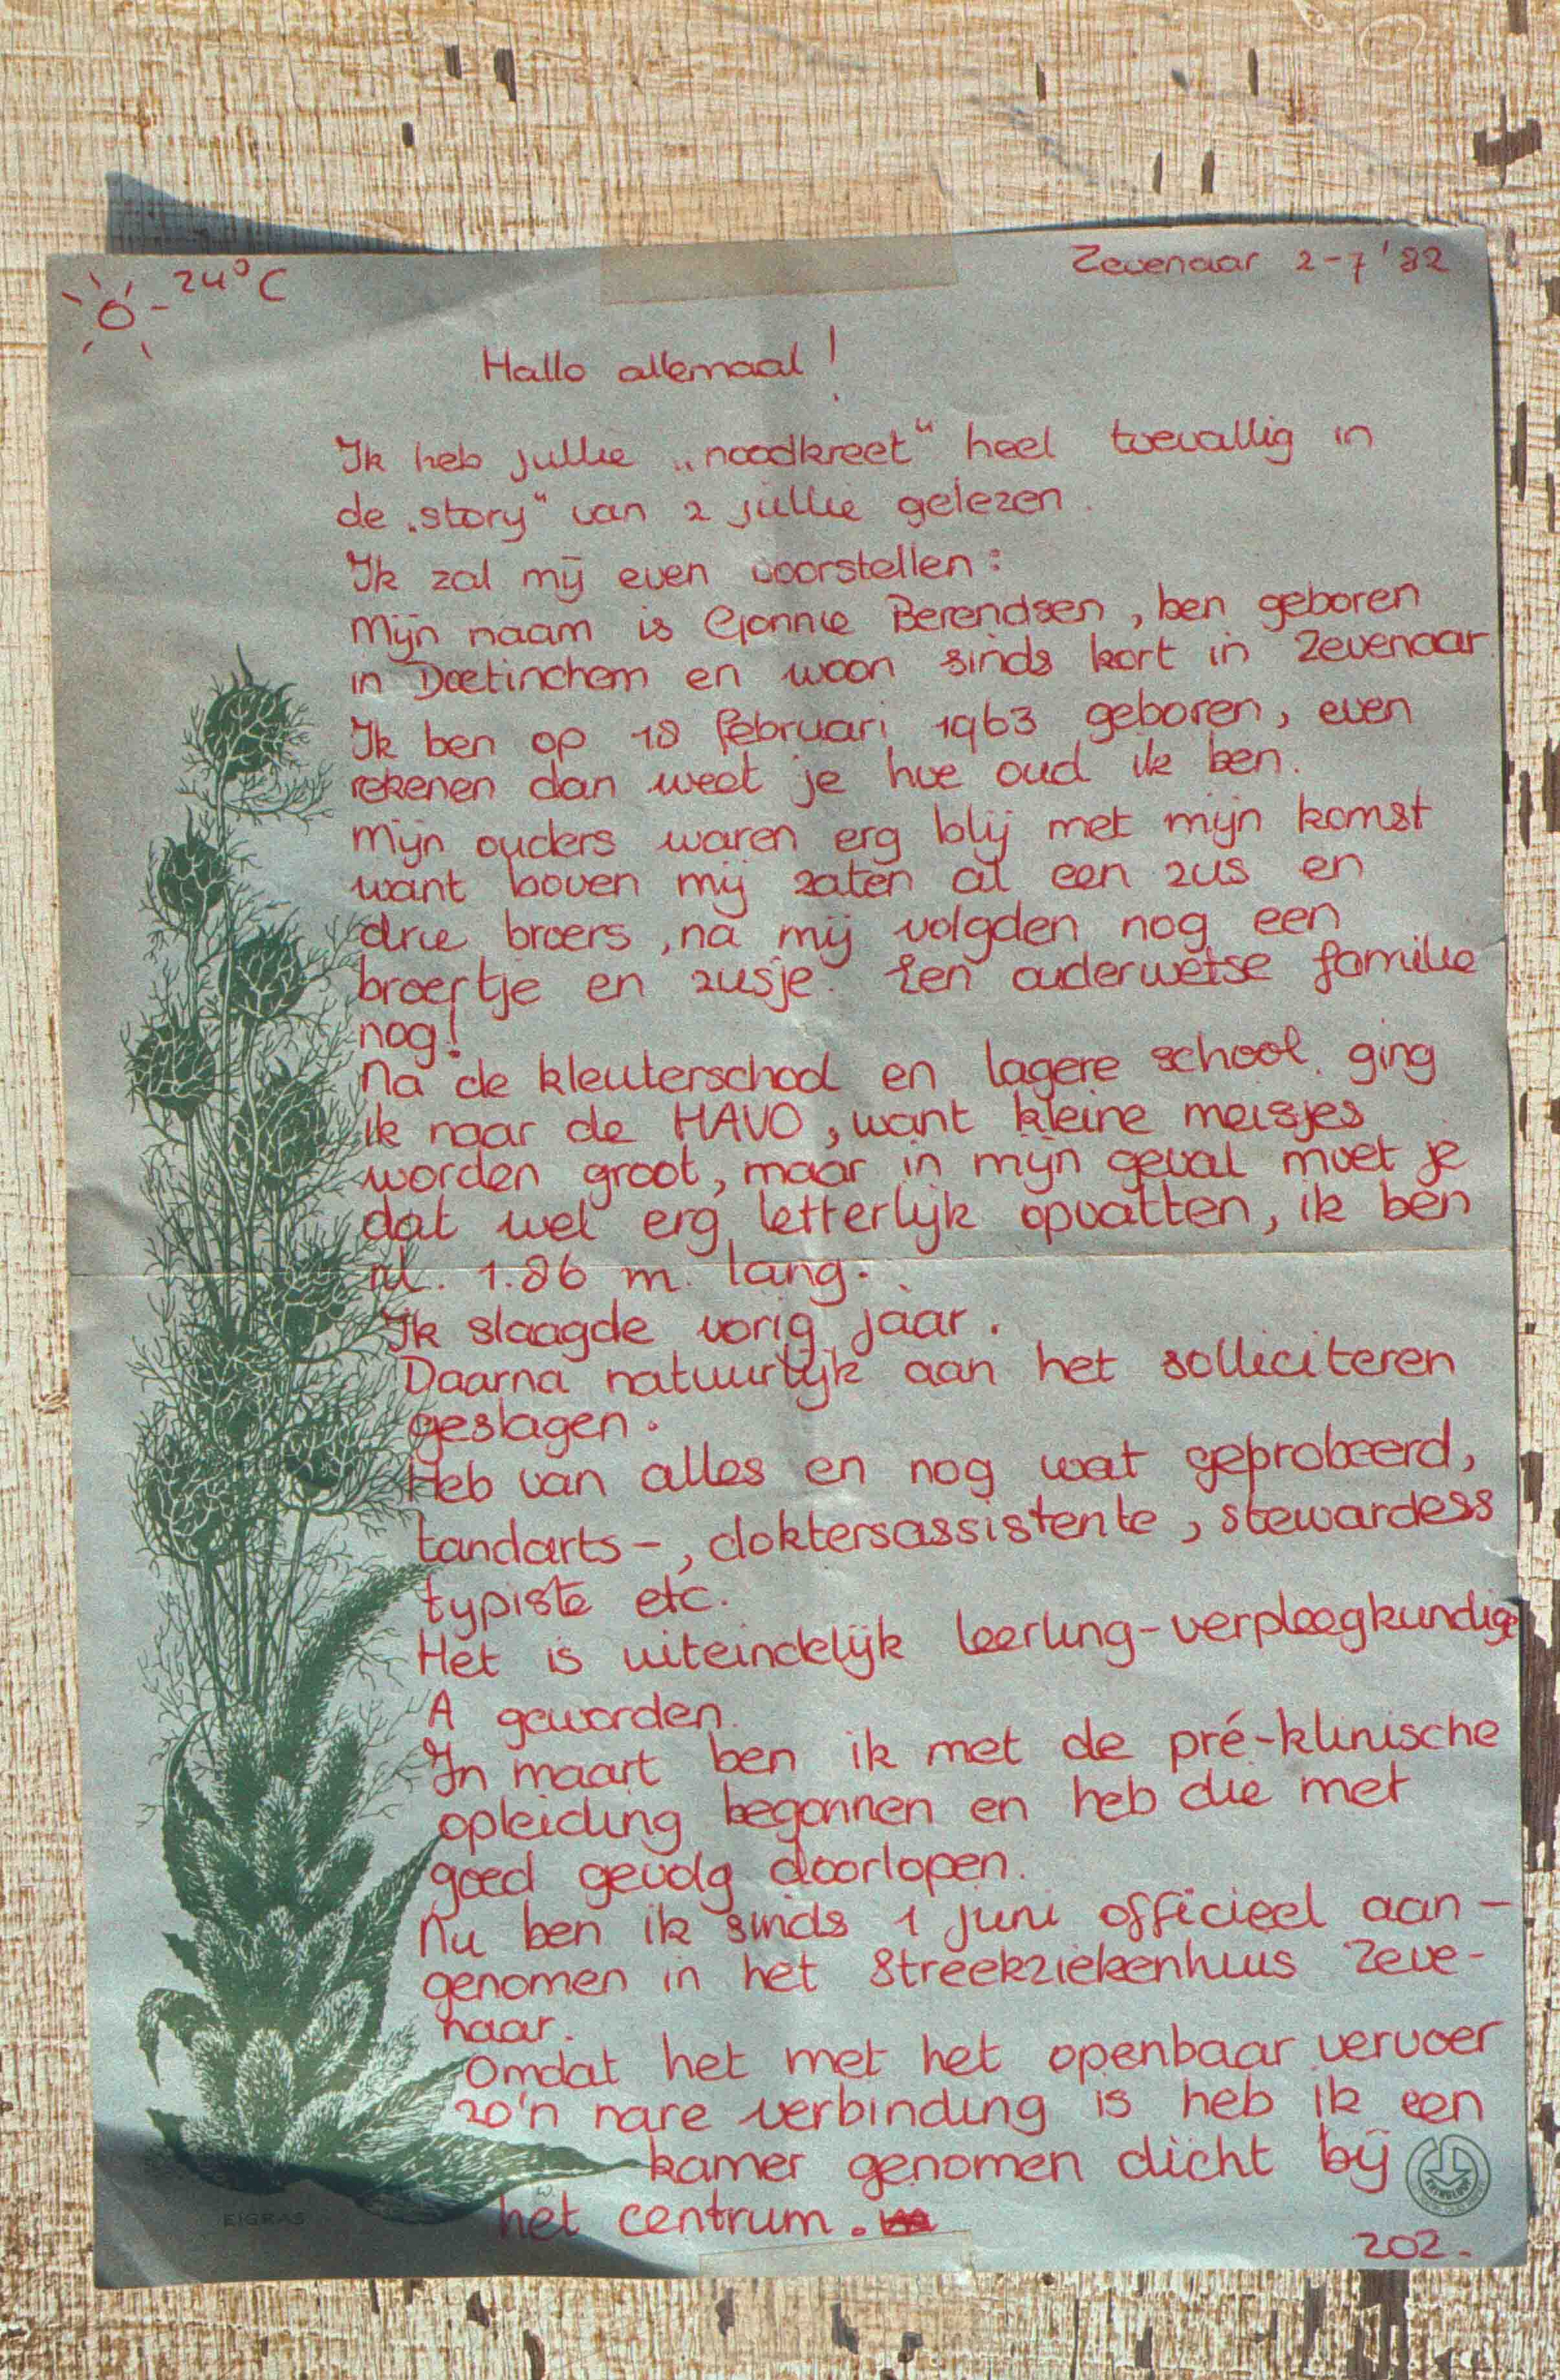 24°C
Zevenaar 2-7 '82
Hallo allemaal!
Ik heb jullie „noodkreet" heel toevallig in
de „story" van 2 jullie gelezen.
Ik zal mij even voorstellen:
Mijn naam is Gonnie Berendsen, ben geboren
in Doetinchem en woon sinds kort in Zevenaar.
Ik ben op 18 februari 1963 geboren, even
rekenen dan weet je hoe oud ik ben.
Mijn ouders waren erg blij met mijn komst
want boven mij zaten al een zus en
drie broers, na mij volgden nog een
broertje en zusje. Een ouderwetse familie
nog!
Na de kleuterschool en lagere school ging
ik naar de HAVO, want kleine meisjes
worden groot, maar in mijn geval moet je
dat wel erg letterlijk opvatten, ik ben
nl. 1.86 m. lang.
Ik slaagde vorig jaar.
Daarna natuurlijk aan het solliciteren
geslagen.
Heb van alles en nog wat geprobeerd,
tandarts-, doktersassistente, stewardess
typiste etc.
Het is uiteindelijk leerling-verpleegkundige
A geworden.
In maart ben ik met de pré-klinische
opleiding begonnen en heb die met
goed gevolg doorlopen.
Nu ben ik sinds 1 juni officieel aan-
genomen in het Streekziekenhuis Zeve-
naar.
Omdat het met het openbaar vervoer
zo'n nare verbinding is heb ik een
kamer genomen dicht bij
het centrum.
EIGRAS
202.